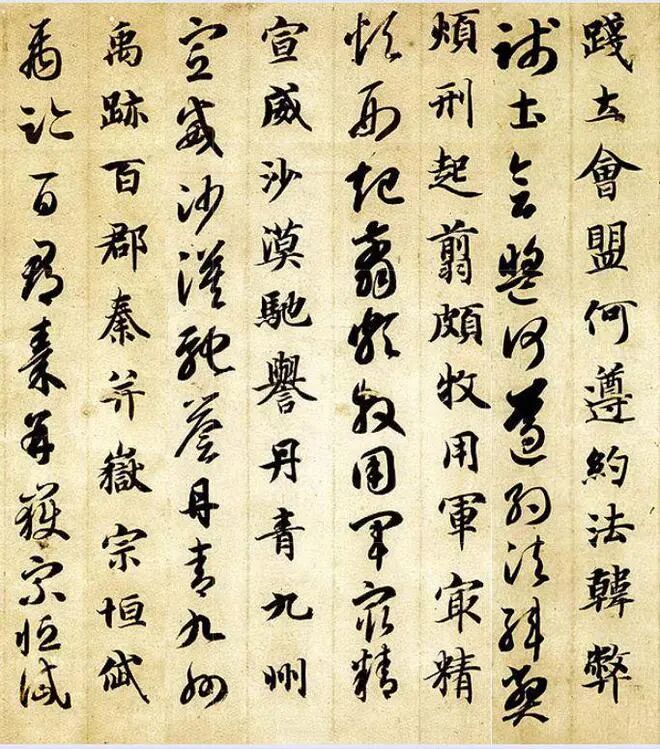 踐土會盟何遵約法韓弊
踐土會盟何遵約法韓弊
煩刑起翦頗牧用軍冣精
煩刑起翦頗牧用軍冣精
宣威沙漠馳譽丹青九州
宣威沙漠馳譽丹青九州
禹跡百郡秦并嶽宗恒岱
禹跡百郡秦并嶽宗恒岱